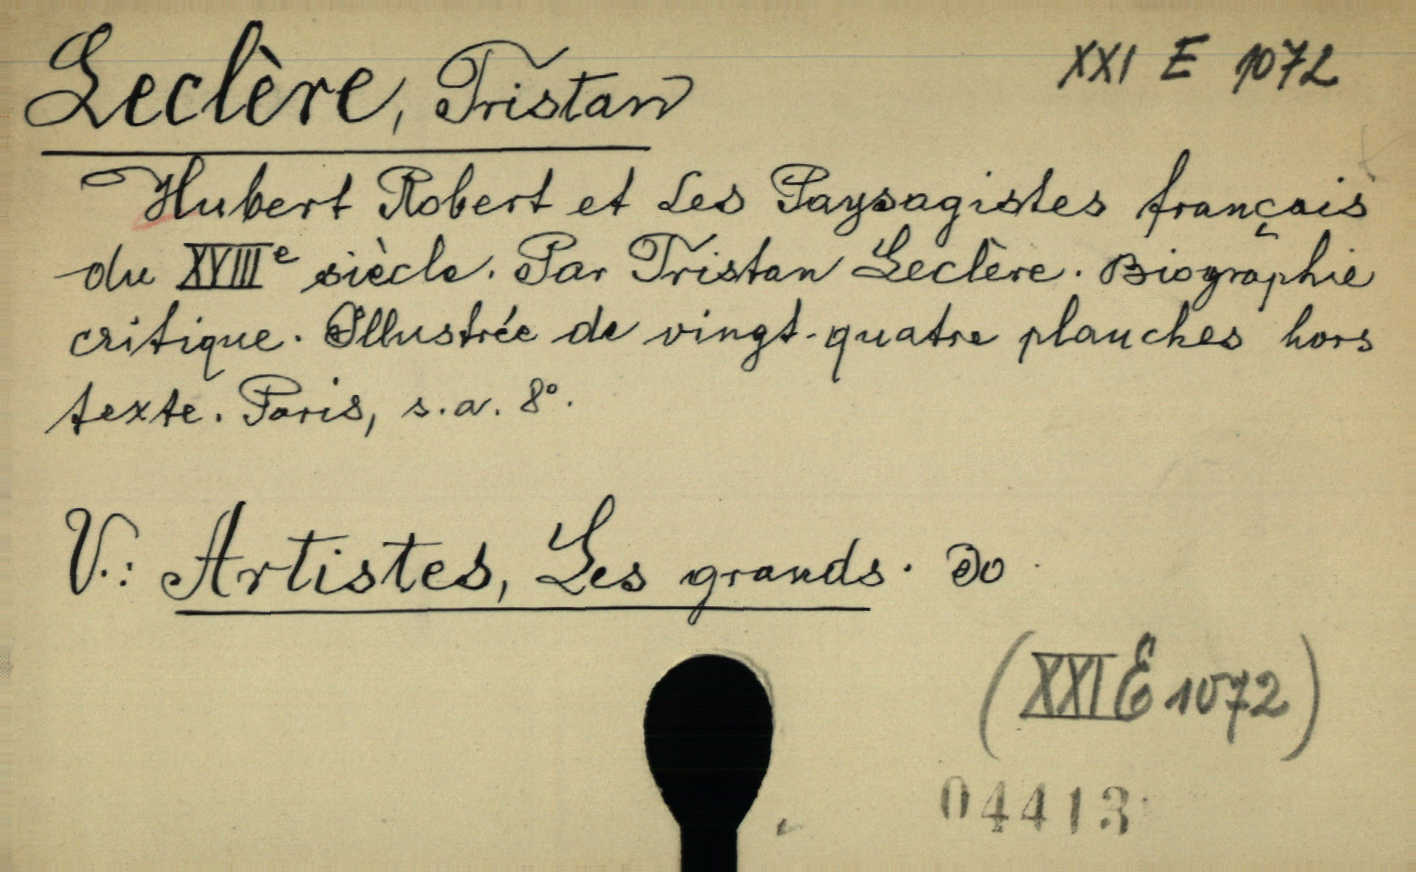 Leclère, Tristan
XXI E 1072
Hubert Robert et Les Paysagistes français
du XVIIIe siècle. Par Tristan Leclère. Biographie
critique. Illustrée de vingt-quatre planches hors
texte. Paris, s.a. 8°.
V.: Artistes, Les grands. Do
(XXI E 1072)
04413